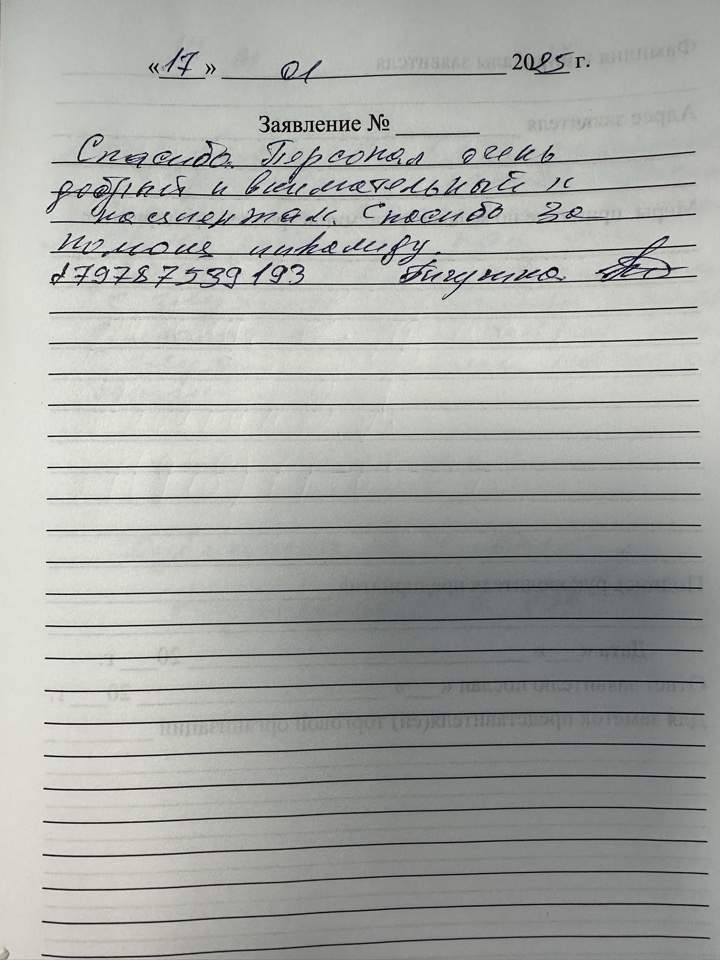 «17» 01 2025 г.
Заявление №
Спасибо. Персонал очень
добрый и внимательный к
пациентам. Спасибо за
помощь инвалиду.
+79787539193